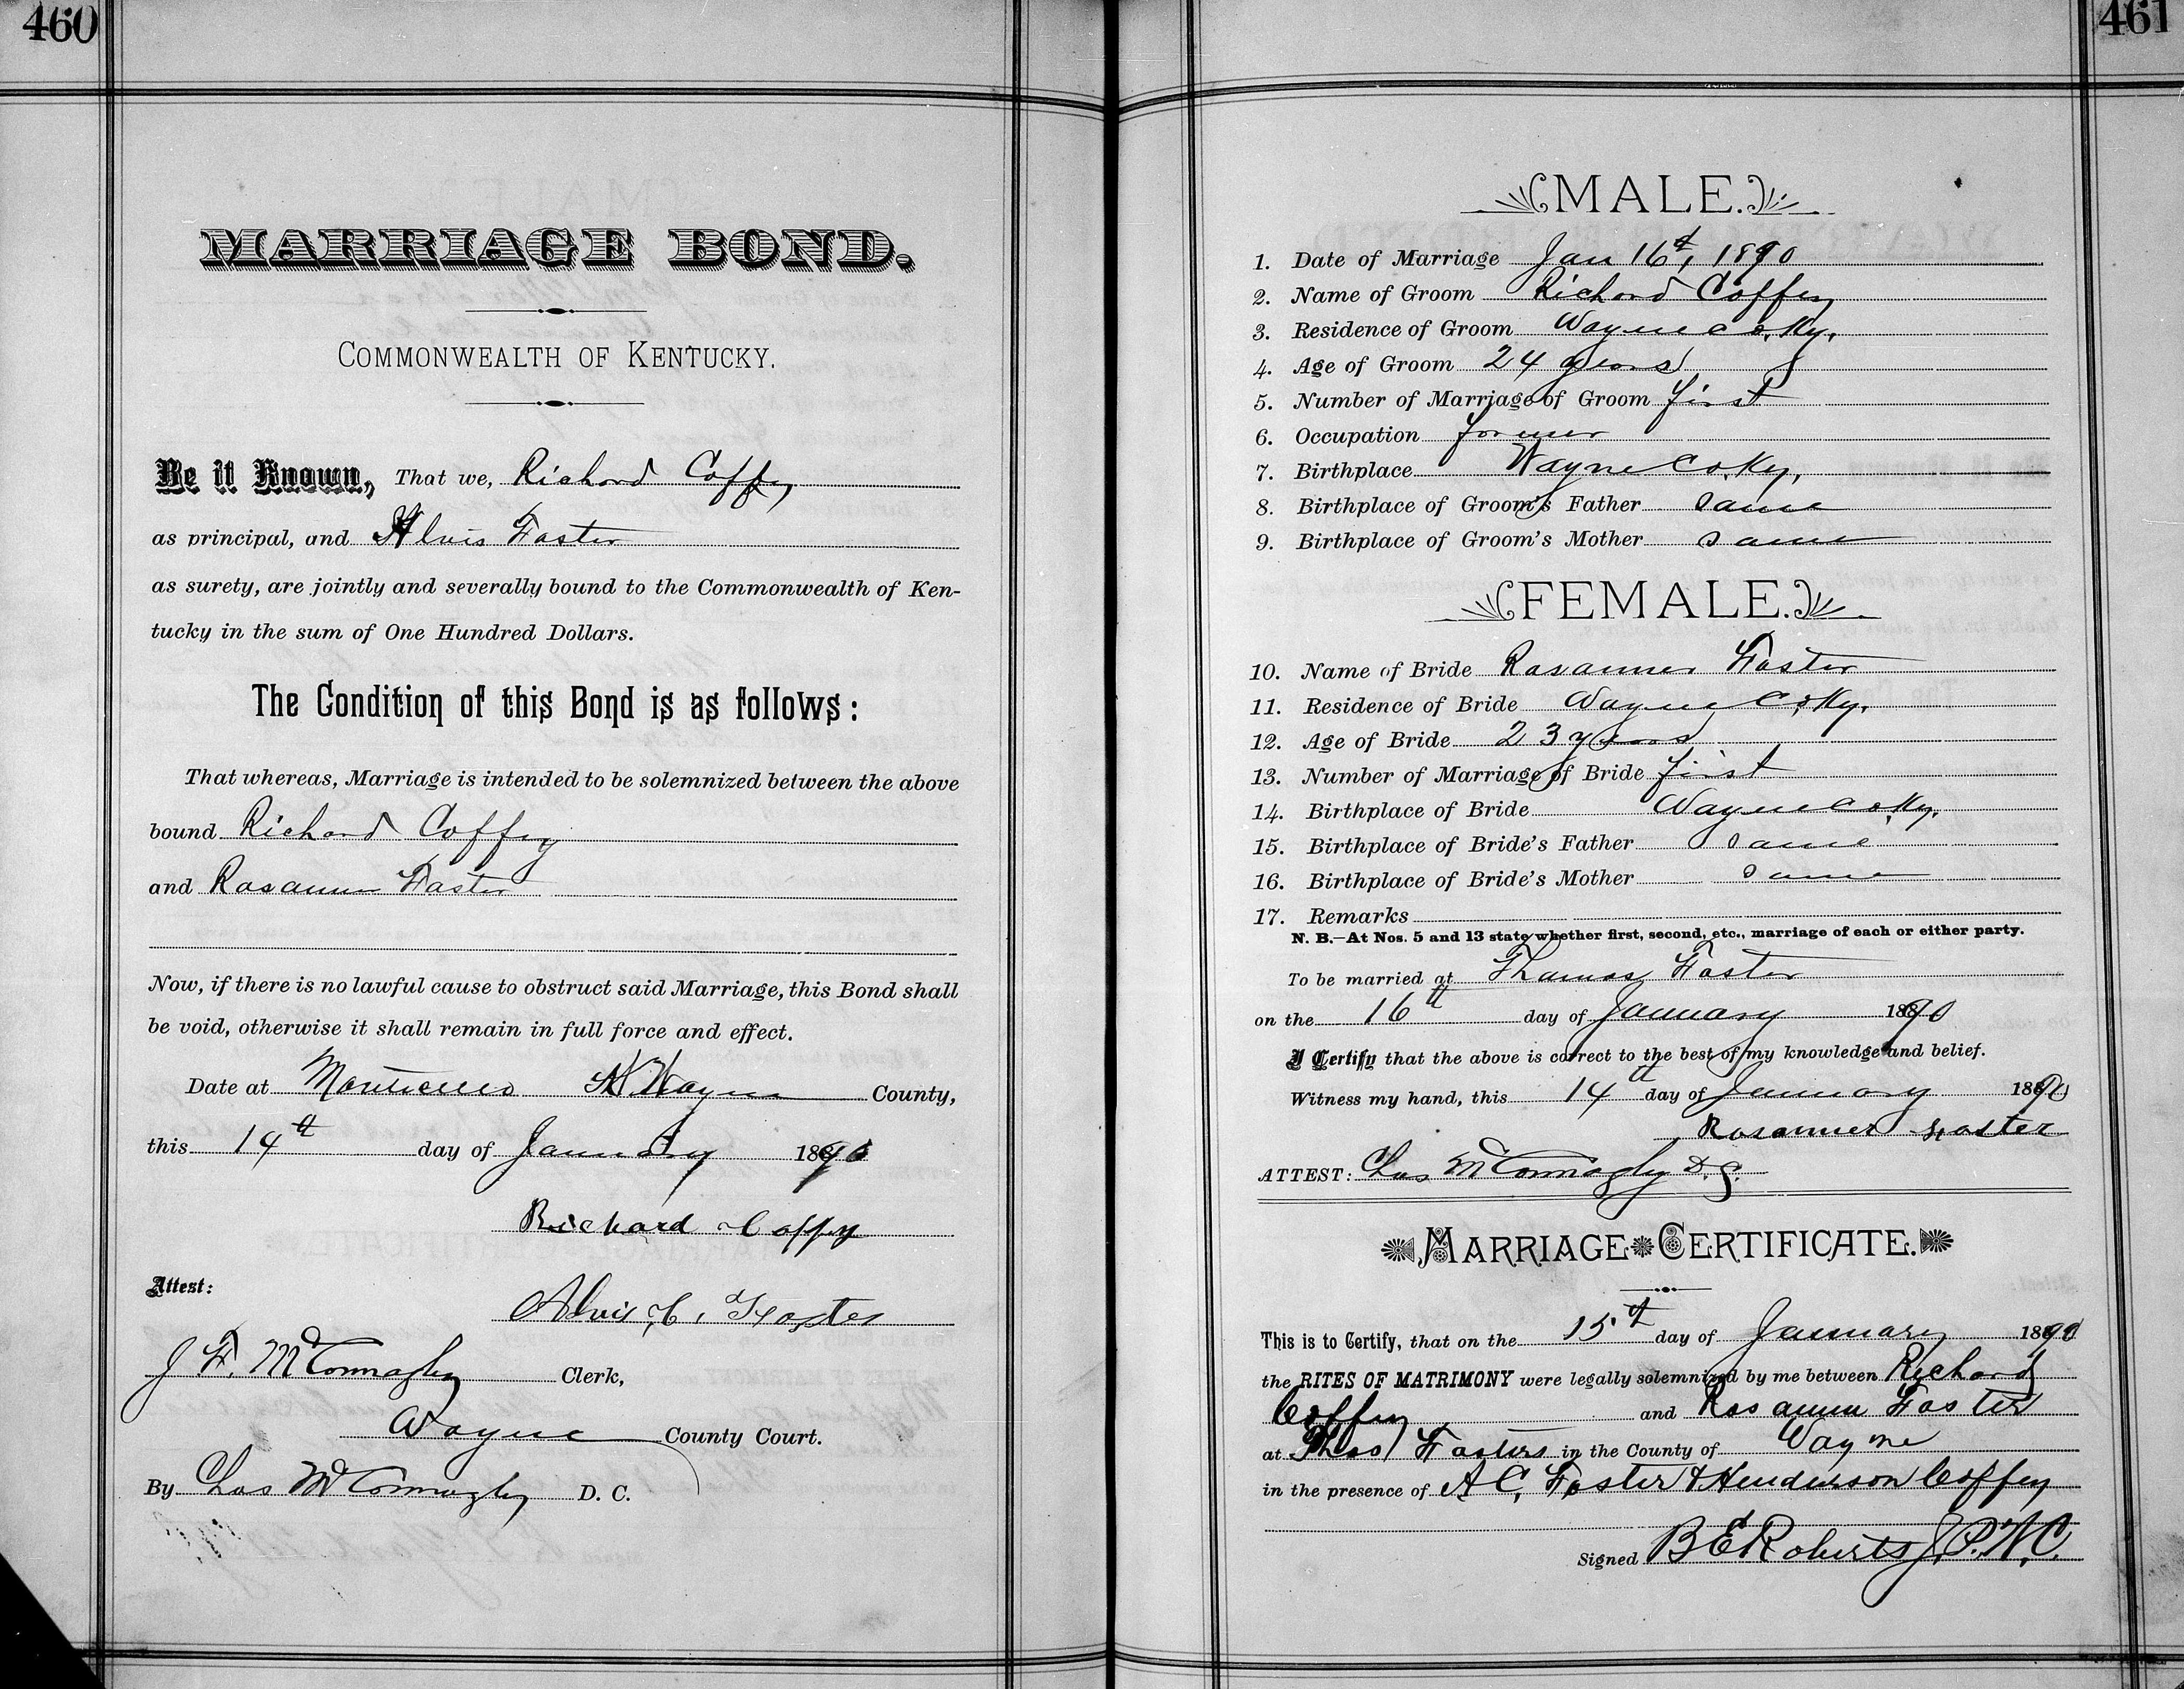 460
MARRIAGE BOND.
COMMONWEALTH OF KENTUCKY.
Be it Known, That we, Richard Coffey
as principal, and Alvis Foster
as surety, are jointly and severally bound to the Commonwealth of Ken-
tucky in the sum of One Hundred Dollars.
The Condition of this Bond is as follows:
That whereas, Marriage is intended to be solemnized between the above
bound Richard Coffey
and Rosanner Foster
Now, if there is no lawful cause to obstruct said Marriage, this Bond shall
be void, otherwise it shall remain in full force and effect.
Date at Monticello Wayne County,
this 14th day of January 1890
Richard Coffey
Attest:
Alvis C. Foster
J. F. McConnaghy Clerk,
Wayne County Court.
By Chas McConnaghy D. C.
461
MALE.
1. Date of Marriage Jan 16th, 1890
2. Name of Groom Richard Coffey
3. Residence of Groom Wayne Co. Ky.
4. Age of Groom 24 years
5. Number of Marriage of Groom first
6. Occupation farmer
7. Birthplace Wayne Co. Ky.
8. Birthplace of Groom's Father same
9. Birthplace of Groom's Mother same
FEMALE.
10. Name of Bride Rosanner Foster
11. Residence of Bride Wayne Co. Ky.
12. Age of Bride 23 years
13. Number of Marriage of Bride first
14. Birthplace of Bride Wayne Co. Ky.
15. Birthplace of Bride's Father same
16. Birthplace of Bride's Mother same
17. Remarks
N. B.—At Nos. 5 and 13 state whether first, second, etc., marriage of each or either party.
To be married at Thomas Foster
on the 16th day of January 1890
I Certify that the above is correct to the best of my knowledge and belief.
Witness my hand, this 14th day of January 1890
Rosanner Foster
ATTEST: Chas McConnaghy D.C.
MARRIAGE CERTIFICATE.
This is to Certify, that on the 15th day of January 1890
the RITES OF MATRIMONY were legally solemnized by me between Richard
Coffey and Rosanner Foster
at Thos Fosters in the County of Wayne
in the presence of A C. Foster & Henderson Coffey
Signed B E Roberts J. P. W. C.